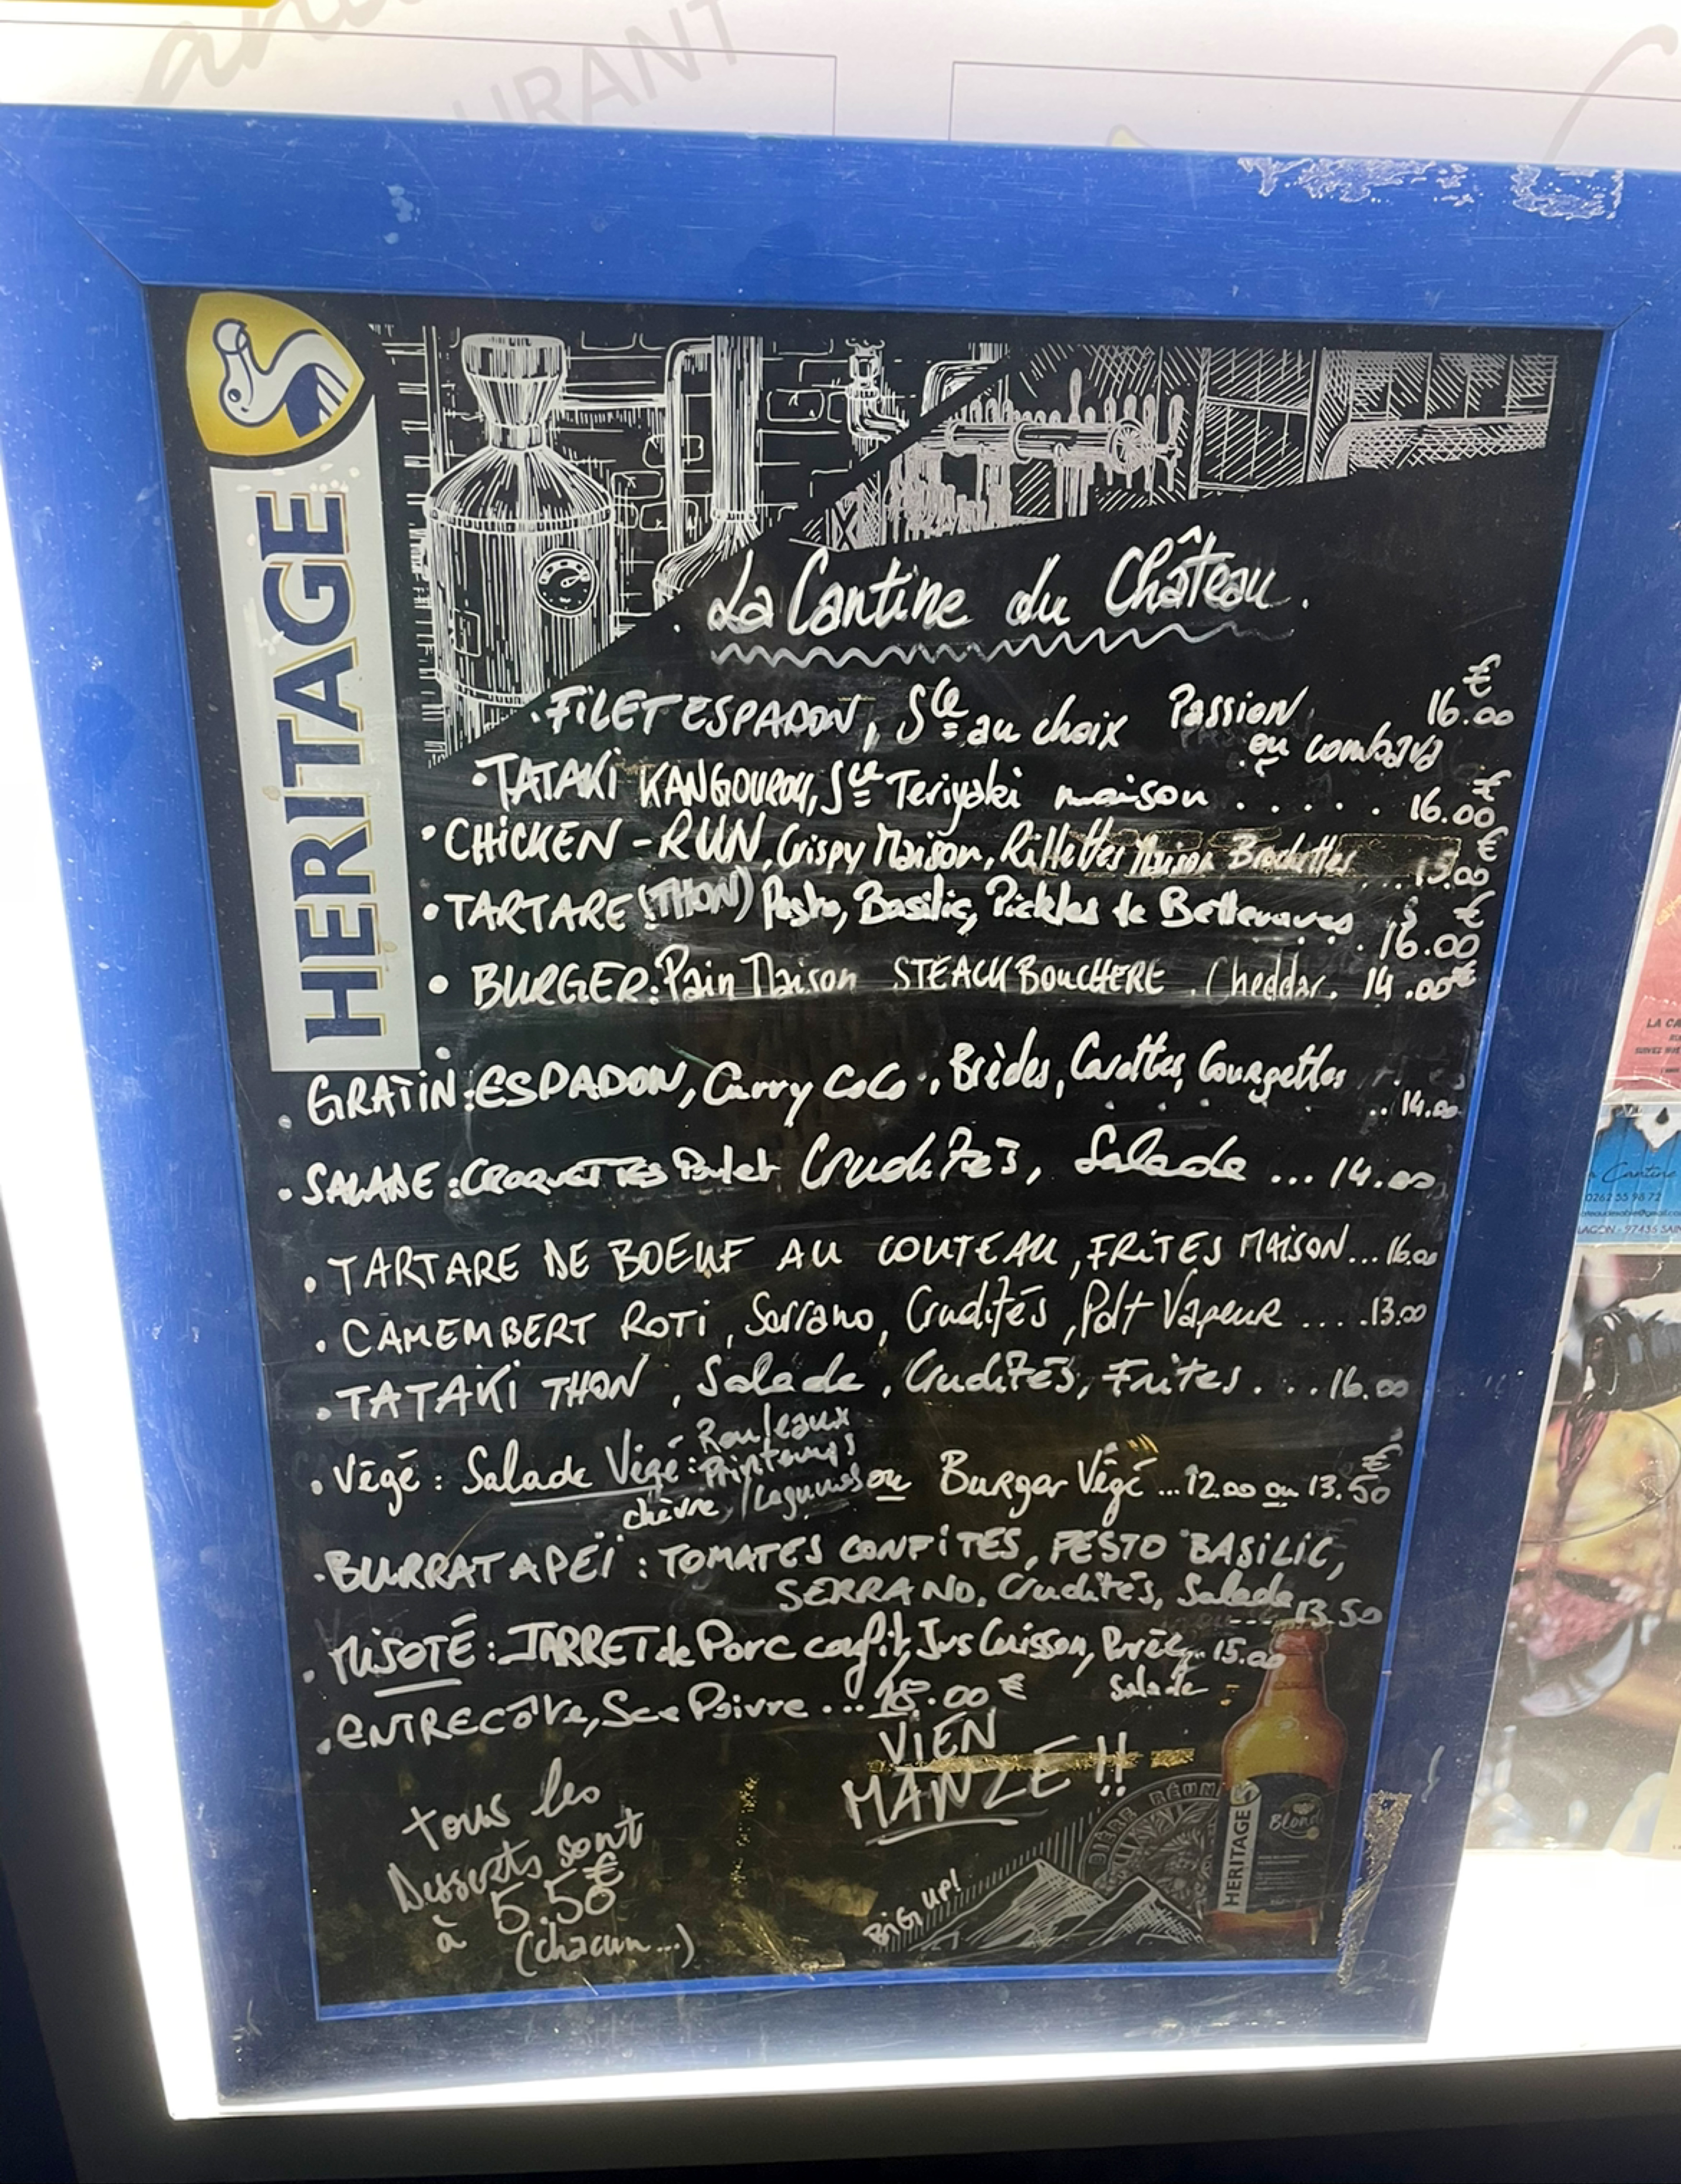 URANT
HERITAGE
La Cantine du Château.
. FiLET ESPADON, Sce au choix Passion 16.00 €
ou combava
. TATAKi KANGOUROU, Sce Teriyaki maison ..... 16.00 €
• CHiCKEN - RUN, Crispy Maison, Rillettes Maison Brochettes ... 15.00 €
• TARTARE (THON) Pesto, Basilic, Pickles de Betteraves 16.00 €
• BURGER: Pain Maison STEACK BOUCHERE. Cheddar. 14.00 €
. GRATiN: ESPADON, Curry CoCo, Brèdes, Carottes, Courgettes .. 14.00
. SALADE: CROQUETTES Poulet Crudités, Salade ... 14.00
. TARTARE DE BOEUF AU COUTEAU, FRiTES MAiSON... 16.00
. CAMEMBERT ROTi, Serrano, Crudités, Pdt Vapeur .... 13.00
. TATAKi THON, Salade, Crudités, Frites. ... 16.00
. Végé: Salade Végé: Rouleaux
Printemps
chèvre / Légumes ou Burger Végé ... 12.00 ou 13.50 €
. BURRATA PEÏ: TOMATES CONFiTES, PESTO BASiLiC,
SERRANO, Crudités, Salade 13.50
. MiJOTÉ: JARRET de Porc confit, Jus Cuisson, 15.00
Salade
. ENTRECÔTE, Sce Poivre ... 18.00 €
VIEN
MANZÉ !!
tous les
Desserts sont
à 5.50 €
(chacun...)
BiG UP!
BIÈRE RÉUN
HERITAGE
Blond
LA CA
Cantine
0262 55 98 72
LAGON - 97435 SAIN